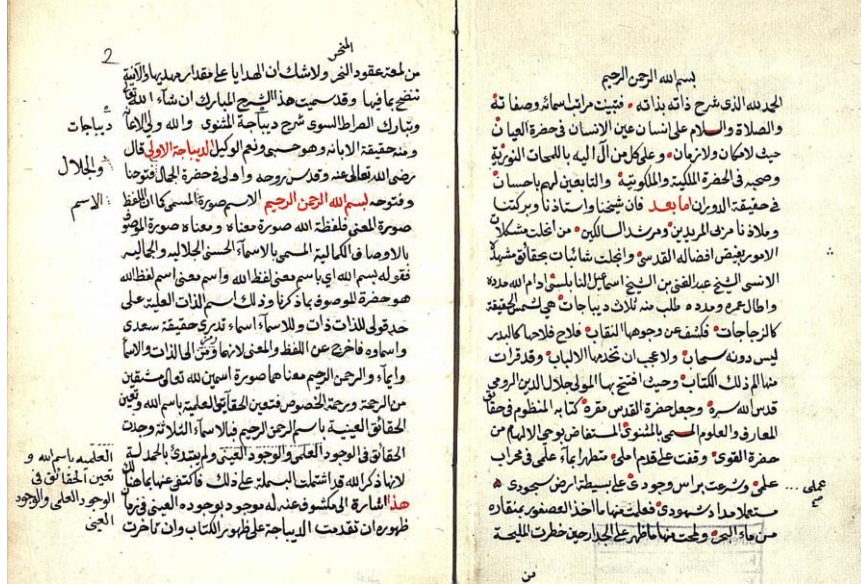 بسم الله الرحمن الرحيم
الحمد لله الذي شرح ذاته بذاته فتبينت مراتب اسمائه وصفاته
والصلاة والسلام على انسان عين الانسان في حضرة العيان
حيث لا مكان ولا زمان وعلى كل من آل اليه باللمحات النورية
وصحبه في الحضرة الملكية والملكوتية والتابعين لهم باحسان
في حقيقة الدوران اما بعد فان شيخنا واستاذنا وبركتنا
وملاذنا مربي المريدين ومرشد السالكين من انحلت مشكلات
الامور بفيض افضاله القدسي وانجلت شائبات بحقائق مشهده
الانسي الشيخ عبد الغني بن الشيخ اسماعيل النابلسي ادام الله مدده
واطال عمره ومدده طلب منه ثلاث ديباجات هي لشمس الحقيقة
كالزجاجات فكشف عن وجوهها النقاب فلاح فلاحها كالبدر
ليس دونه سحاب ولا عجب ان تخدمها الالباب وقد قرات
منها لم ذلك الكتاب وحيث افتتح بها المولى جلال الدين الرومي
قدس الله سره وجعل حضرة القدس مقره كتابه المنظوم في حقائق
المعارف والعلوم المسمى بالمثنوي المستفاض بوحي الالهام من
حضرة القوي وقفت على قدم املي متطهرا بماء علمي في محراب
علمي وشرعت براس وجودي على بسيطة ارض سجودي
مستملا مداد شهودي فعلمت منها ما اخذ العصفور بمنقاره
من ماء البحر ولمحت منها ما ظهر على الجدار حين خطرت المليحة
من
عملي
المنحر
2
من لمعة عقود النحر ولا شك ان الهدايا على مقدار مهديها والآنية
تنضح بما فيها وقد سميت هذا الشرح المبارك ان شاء الله تعالى
وتبارك الصراط السوي شرح ديباجة المثنوي والله ولي الاعانة
ومنه حقيقة الابانه وهو حسبي ونعم الوكيل الديباجة الاولى قال
رضي الله تعالى عنه وقدس روحه واولى في حضرة الجمال فتوحنا
وفتوحه بسم الله الرحمن الرحيم الاسم صورة المسمى كما ان اللفظ
صورة المعنى فلفظة الله صورة معناه ومعناه صورة الموصوف
بالاوصاف الكمالية المسمى بالاسماء الحسنى الجلاليه والجماليه
فقوله بسم الله اي باسم معنى لفظ الله واسم معنى اسم لفظ الله
هو حضرة للموصوف بما ذكرنا وذلك اسم الذات العلية على
حد قولي للذات ذات وللاسماء اسماء تدري حقيقة سعدى
واسماوه فاخرج عن اللفظ والمعنى لانهما رمز الى الذات والاسما
وايماء والرحمن الرحيم معناهما صورة اسمين لله تعالى مشتقين
من الرحمة ورحمة الخصوص فتعين الحقائق العلمية باسم الله وتعين
الحقائق العينية باسم الرحمن الرحيم فبالاسماء الثلاثة وجدت
الحقائق في الوجود العلمي والوجود العيني ولم يبتدئ بالحمدلة
لانها ذكر الله قد اشتملت البسملة على ذلك فاكتفى عنها بما هنالك
هذا اشارة الى مكشوف عنه له موجود بوجوده العيني في زمان
ظهوره ان تقدمت الديباجة على ظهور الكتاب وان تاخرت
ديباجات
والجلال
الاسم
العلميه باسم الله و
تعين الحقائق في
الوجود العلمي والوجود
العيني